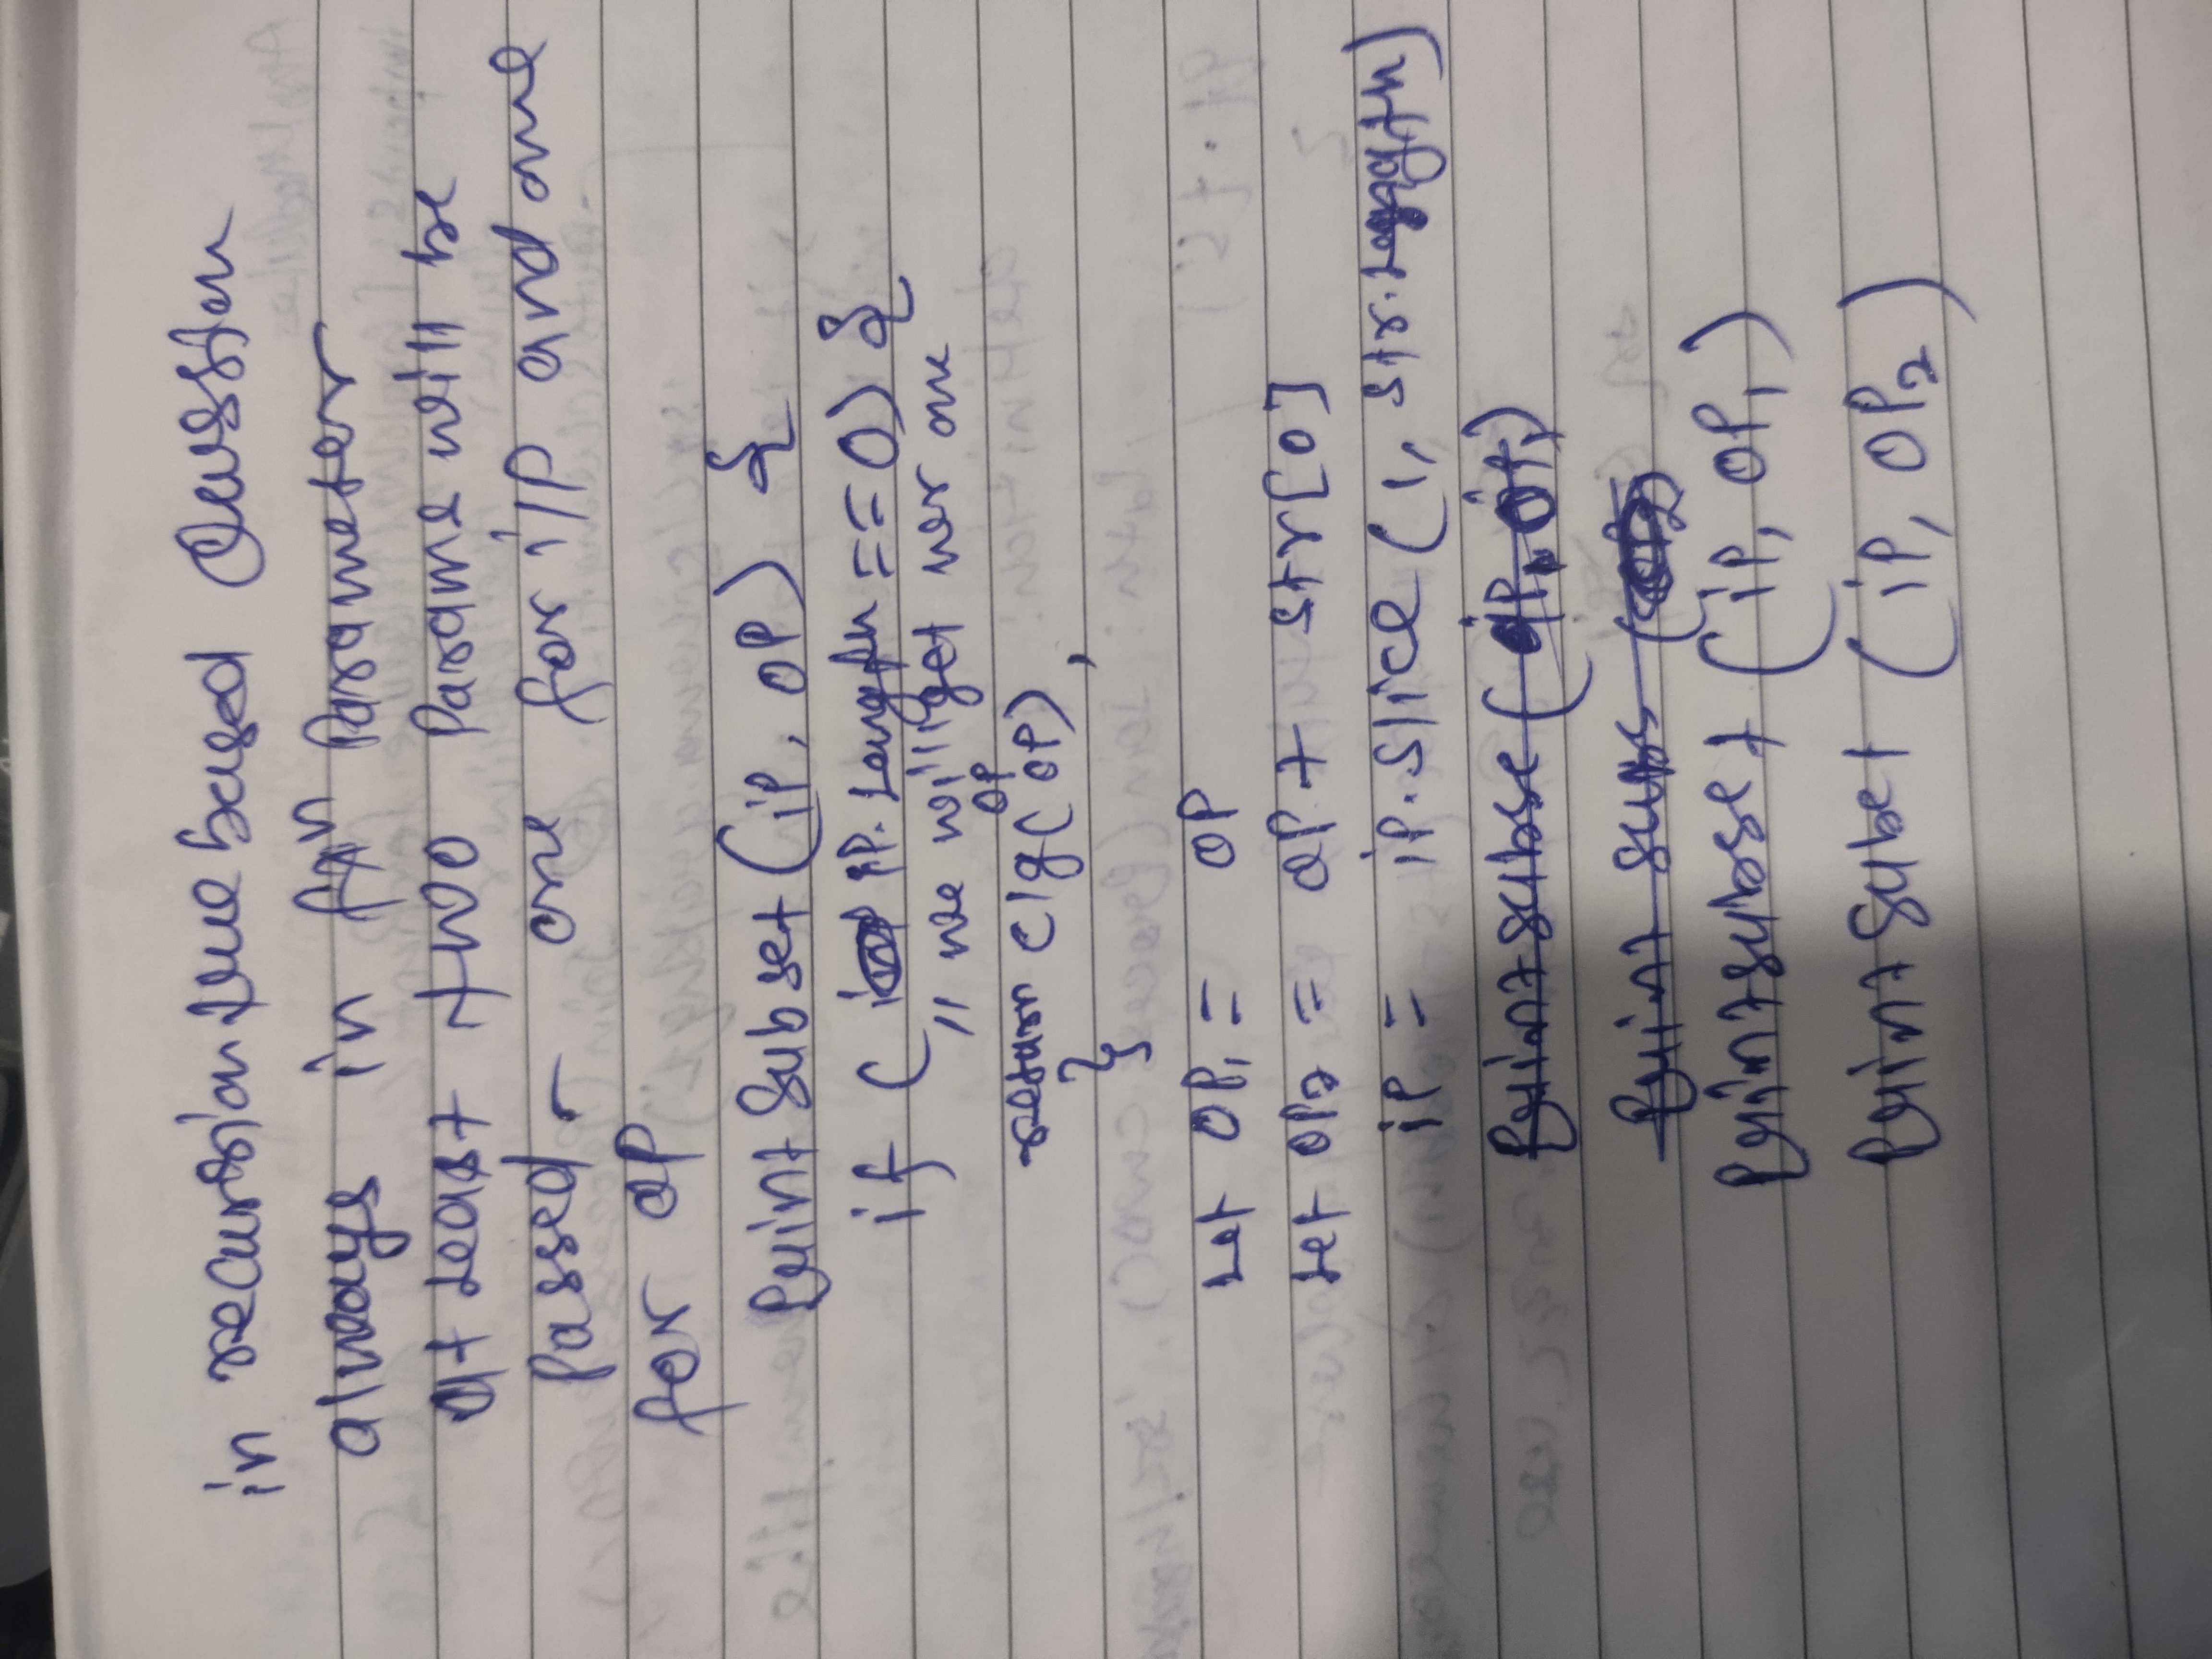 in recursion tree based Question
always in fxn Parameter
at least two Params will be
Passed - one for i/P and one
for OP
Print Subset (iP, OP) {
if ( iP. Length == 0) {
// we will get one
OP
return clg( OP),
}
Let OP1 = OP
Let OP2 = OP + str[0]
iP = iP.slice (1, str.Length)
Printsubse (iP,
Print subs (OP2
Printsubset (iP, OP1)
Print Subet (iP, OP2)